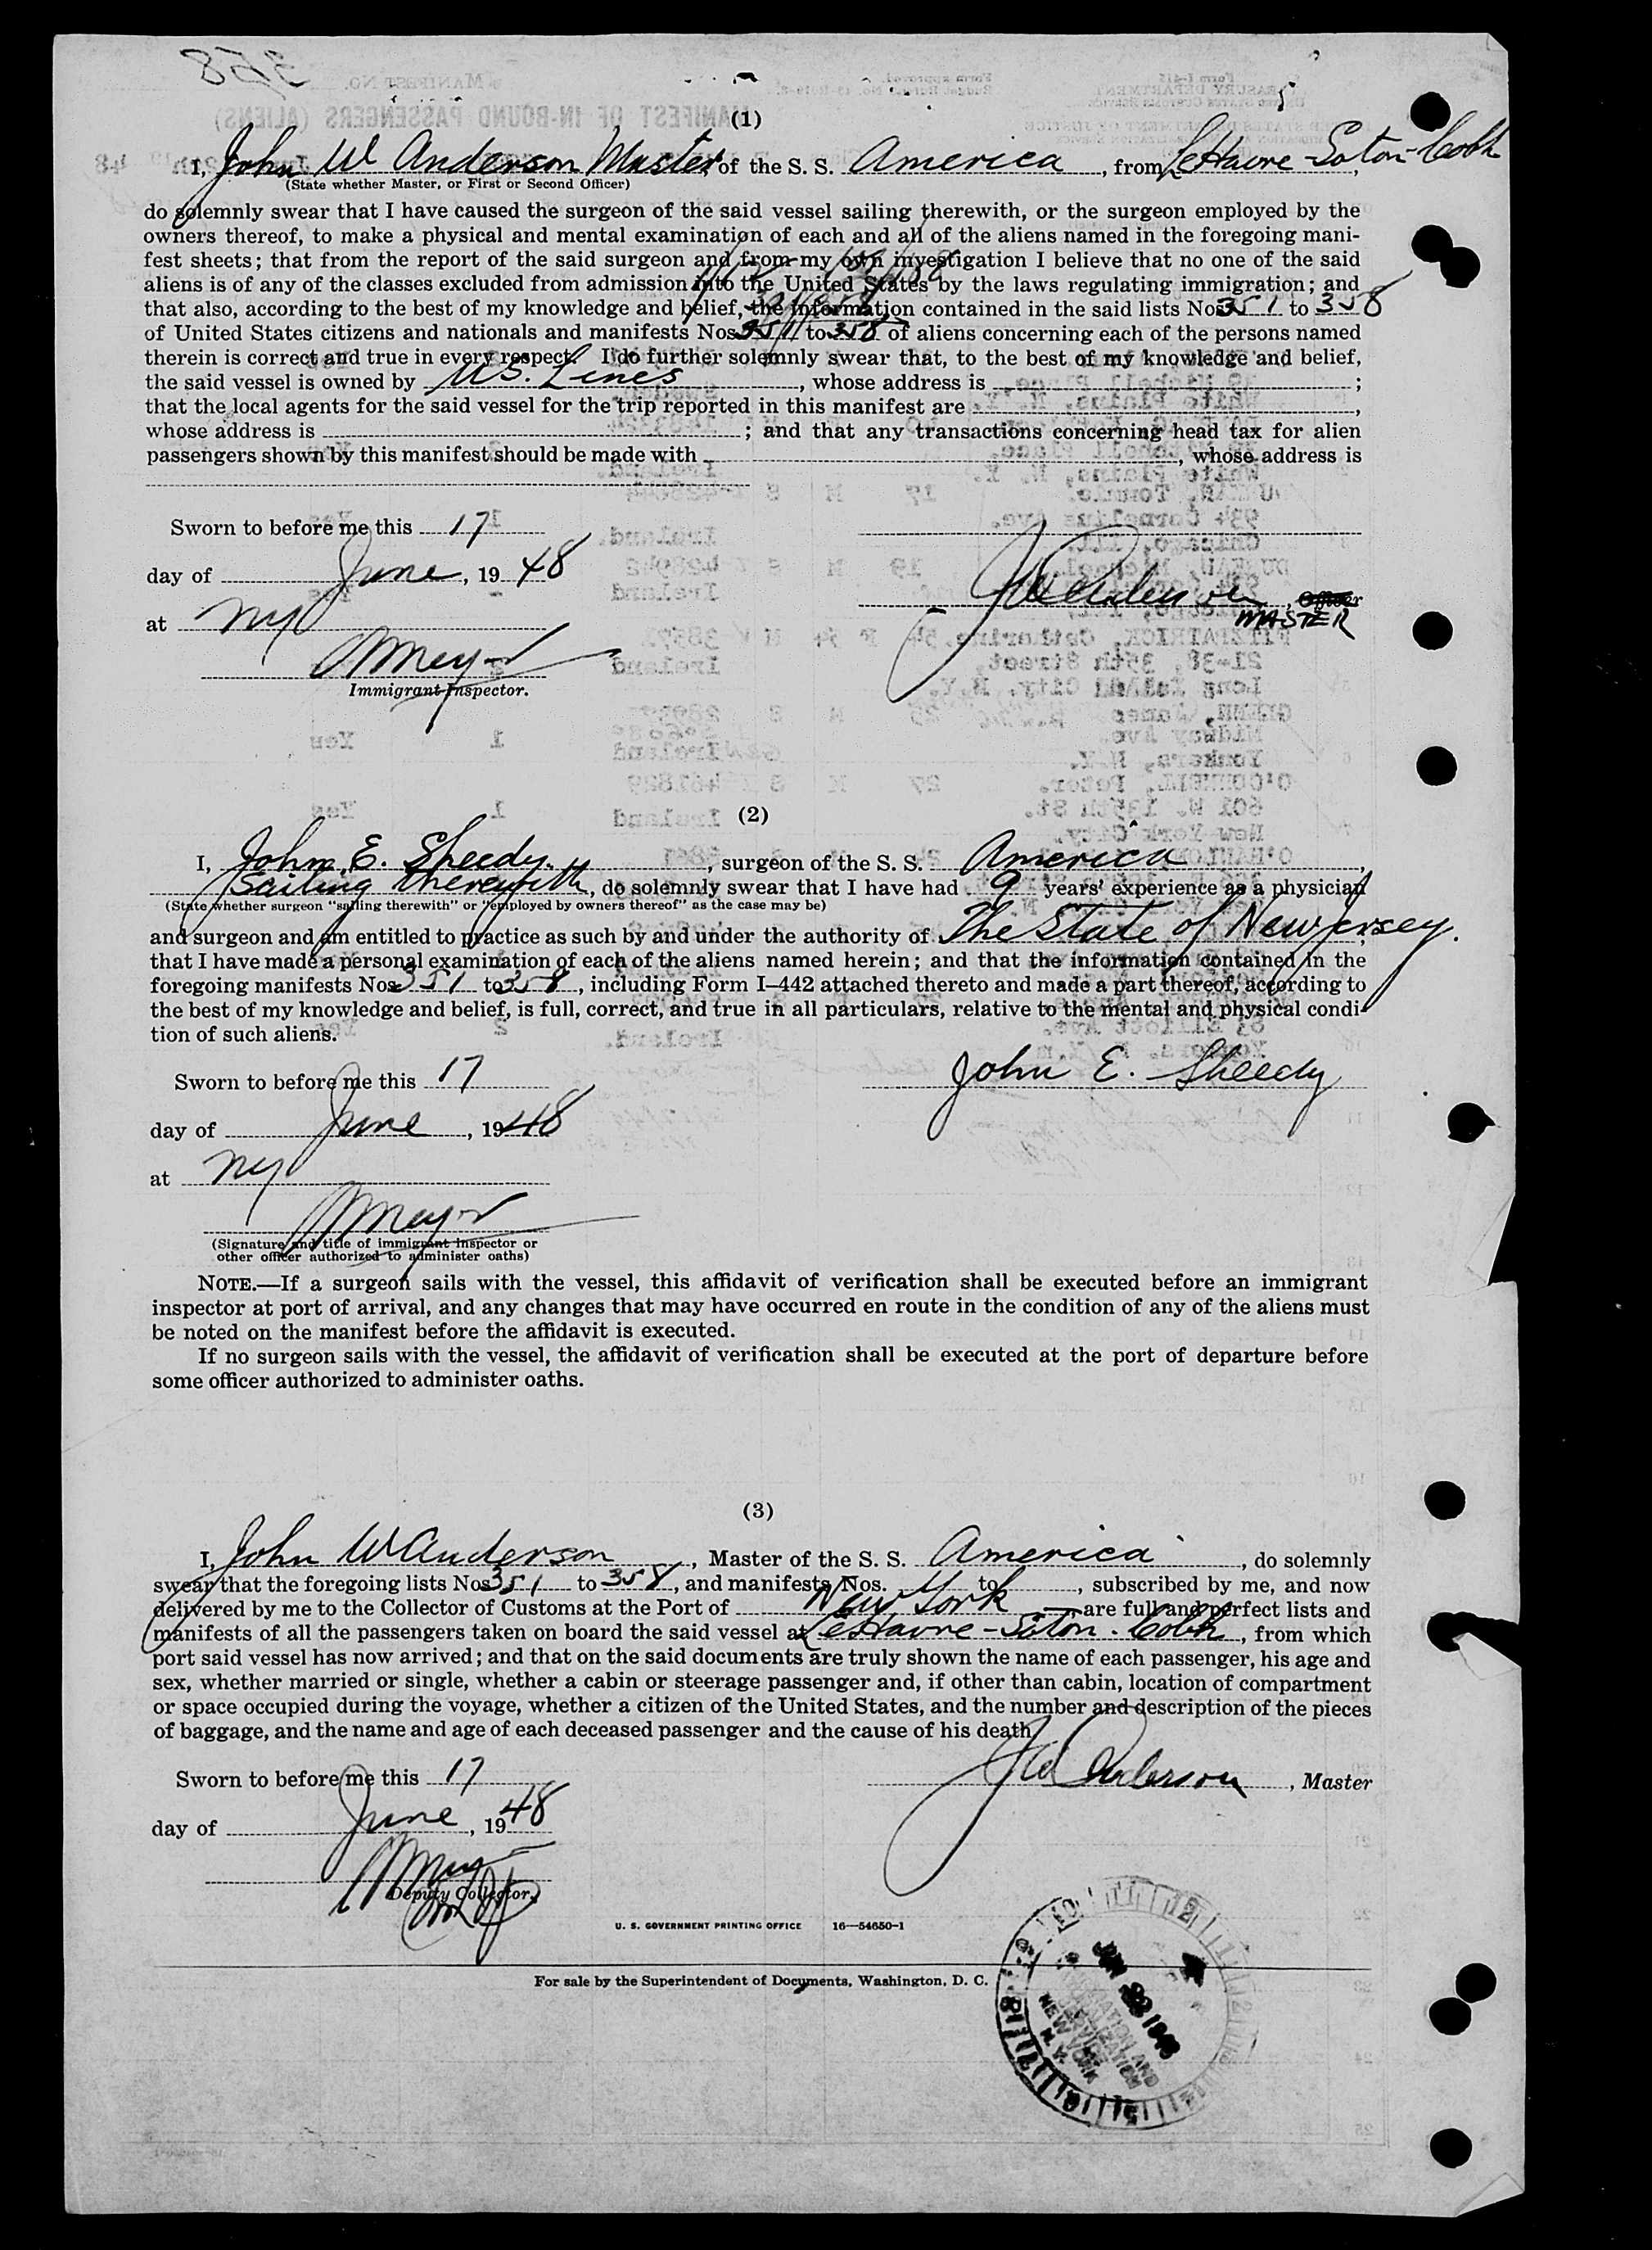 358
(1)
I, John W Anderson Master of the S. S. America, from LeHavre-Soton-Cobh,
(State whether Master, or First or Second Officer)
do solemnly swear that I have caused the surgeon of the said vessel sailing therewith, or the surgeon employed by the
owners thereof, to make a physical and mental examination of each and all of the aliens named in the foregoing mani-
fest sheets; that from the report of the said surgeon and from my own investigation I believe that no one of the said
aliens is of any of the classes excluded from admission into the United States by the laws regulating immigration; and
that also, according to the best of my knowledge and belief, the information contained in the said lists Nos. 351 to 358
of United States citizens and nationals and manifests Nos. 351 to 358 of aliens concerning each of the persons named
therein is correct and true in every respect. I do further solemnly swear that, to the best of my knowledge and belief,
the said vessel is owned by U.S. Lines, whose address is ;
that the local agents for the said vessel for the trip reported in this manifest are ,
whose address is ; and that any transactions concerning head tax for alien
passengers shown by this manifest should be made with , whose address is
Sworn to before me this 17
day of June, 1948
at NY
JW Anderson, Officer
MASTER
Immigrant Inspector.
(2)
I, John E. Sheedy, surgeon of the S. S. America,
Sailing therewith, do solemnly swear that I have had 9 years' experience as a physician
(State whether surgeon "sailing therewith" or "employed by owners thereof" as the case may be)
and surgeon and am entitled to practice as such by and under the authority of The State of New Jersey.
that I have made a personal examination of each of the aliens named herein; and that the information contained in the
foregoing manifests Nos. 351 to 358, including Form I-442 attached thereto and made a part thereof, according to
the best of my knowledge and belief, is full, correct, and true in all particulars, relative to the mental and physical condi-
tion of such aliens.
Sworn to before me this 17
John E. Sheedy
day of June, 1948
at NY
(Signature and title of immigrant inspector or
other officer authorized to administer oaths)
NOTE.—If a surgeon sails with the vessel, this affidavit of verification shall be executed before an immigrant
inspector at port of arrival, and any changes that may have occurred en route in the condition of any of the aliens must
be noted on the manifest before the affidavit is executed.
If no surgeon sails with the vessel, the affidavit of verification shall be executed at the port of departure before
some officer authorized to administer oaths.
(3)
I, John W Anderson, Master of the S. S. America, do solemnly
swear that the foregoing lists Nos. 351 to 358, and manifests Nos. to , subscribed by me, and now
delivered by me to the Collector of Customs at the Port of New York, are full and perfect lists and
manifests of all the passengers taken on board the said vessel at LeHavre-Soton-Cobh, from which
port said vessel has now arrived; and that on the said documents are truly shown the name of each passenger, his age and
sex, whether married or single, whether a cabin or steerage passenger and, if other than cabin, location of compartment
or space occupied during the voyage, whether a citizen of the United States, and the number and description of the pieces
of baggage, and the name and age of each deceased passenger and the cause of his death.
Sworn to before me this 17
JW Anderson, Master
day of June, 1948
Deputy Collector.
U. S. GOVERNMENT PRINTING OFFICE 16—54650-1
For sale by the Superintendent of Documents, Washington, D. C.
NEW YORK
N. Y.